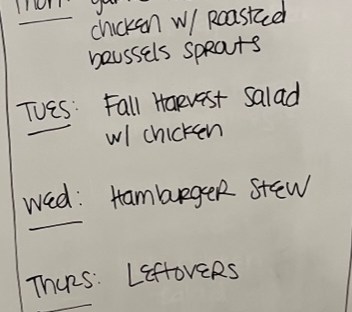 chicken w/ Roasted
brussels sprouts
Tues: Fall Harvest Salad
w/ chicken
Wed: Hamburger Stew
Thurs: Leftovers